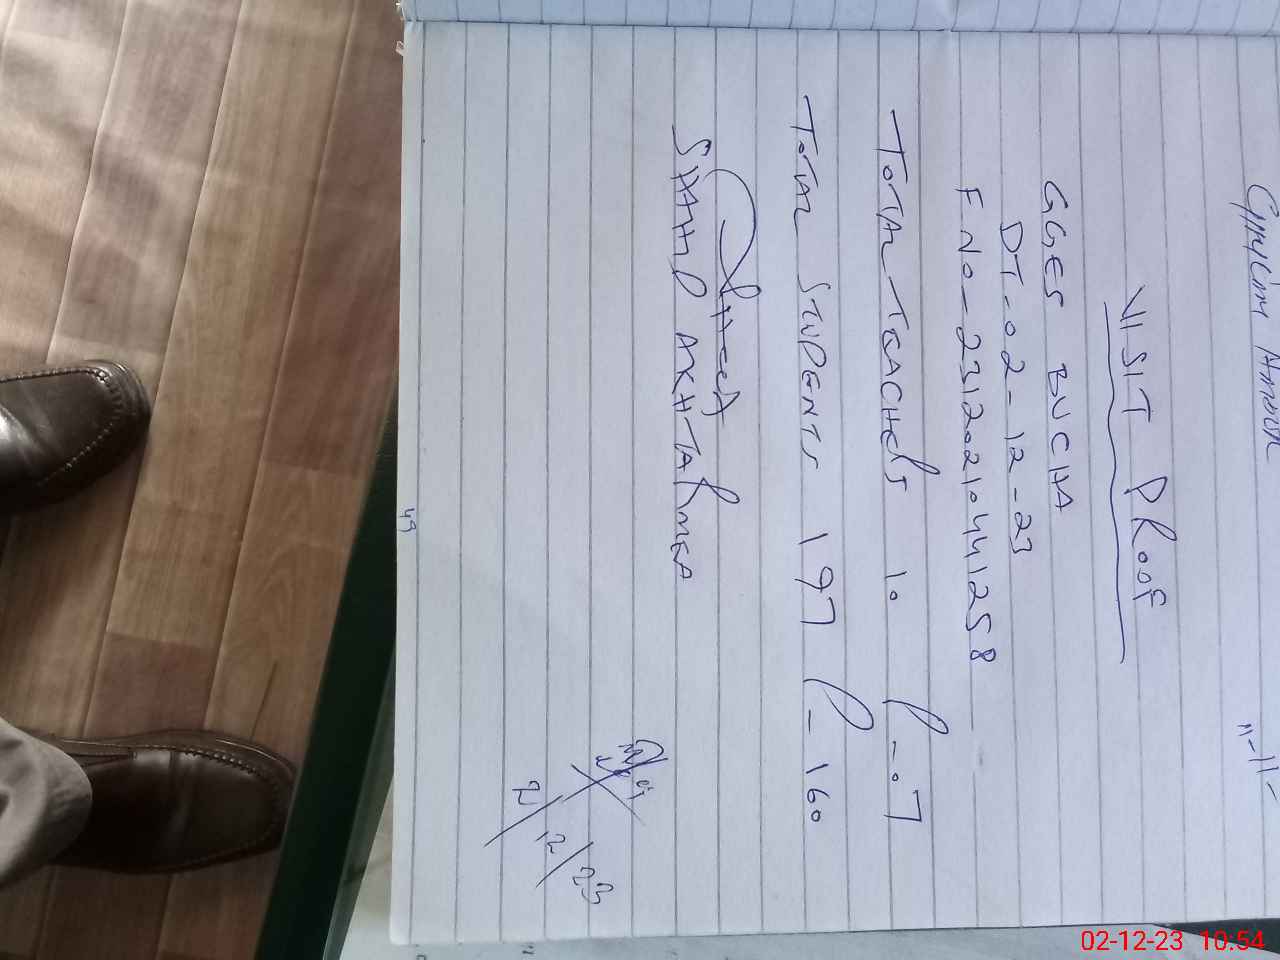 VISIT PROOF
GGES BUCHA
DT-02-12-23
F NO-231202104441258
TOTAL TEACHERS 10 P-07
TOTAL STUDENTS 197 P-160
SHAHID AKHTAR MEA
2/12/23
49
02-12-23 10:54